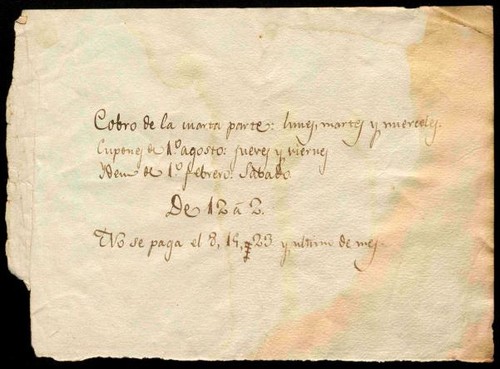 Cobro de la cuarta parte: lunes, martes y miercoles.
Cupones de 1º agosto: jueves y viernes
Idem de 1º febrero: Sabado
De 12 á 2.
No se paga el 8, 15, 23 y ultimo de mes.